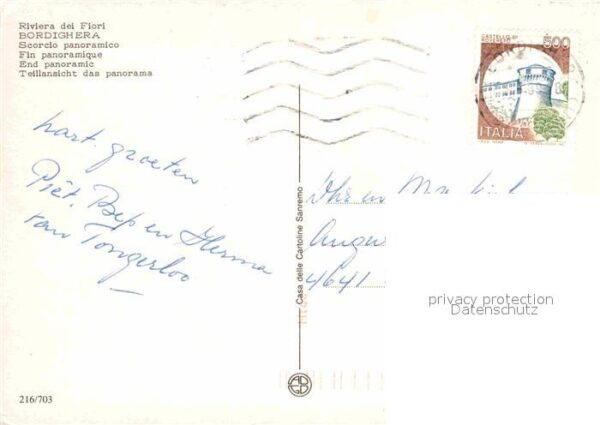 Riviera dei Fiori
BORDIGHERA
Scorcio panoramico
Fin panoramique
End panoramic
Teillansicht das panorama
CASTELLO DI
ROVERETO
500
ITALIA
hart. groeten
Piet. Bep en Herma
van Tongerloo
Casa delle Cartoline Sanremo
Dhr en
4641
privacy protection
Datenschutz
216/703